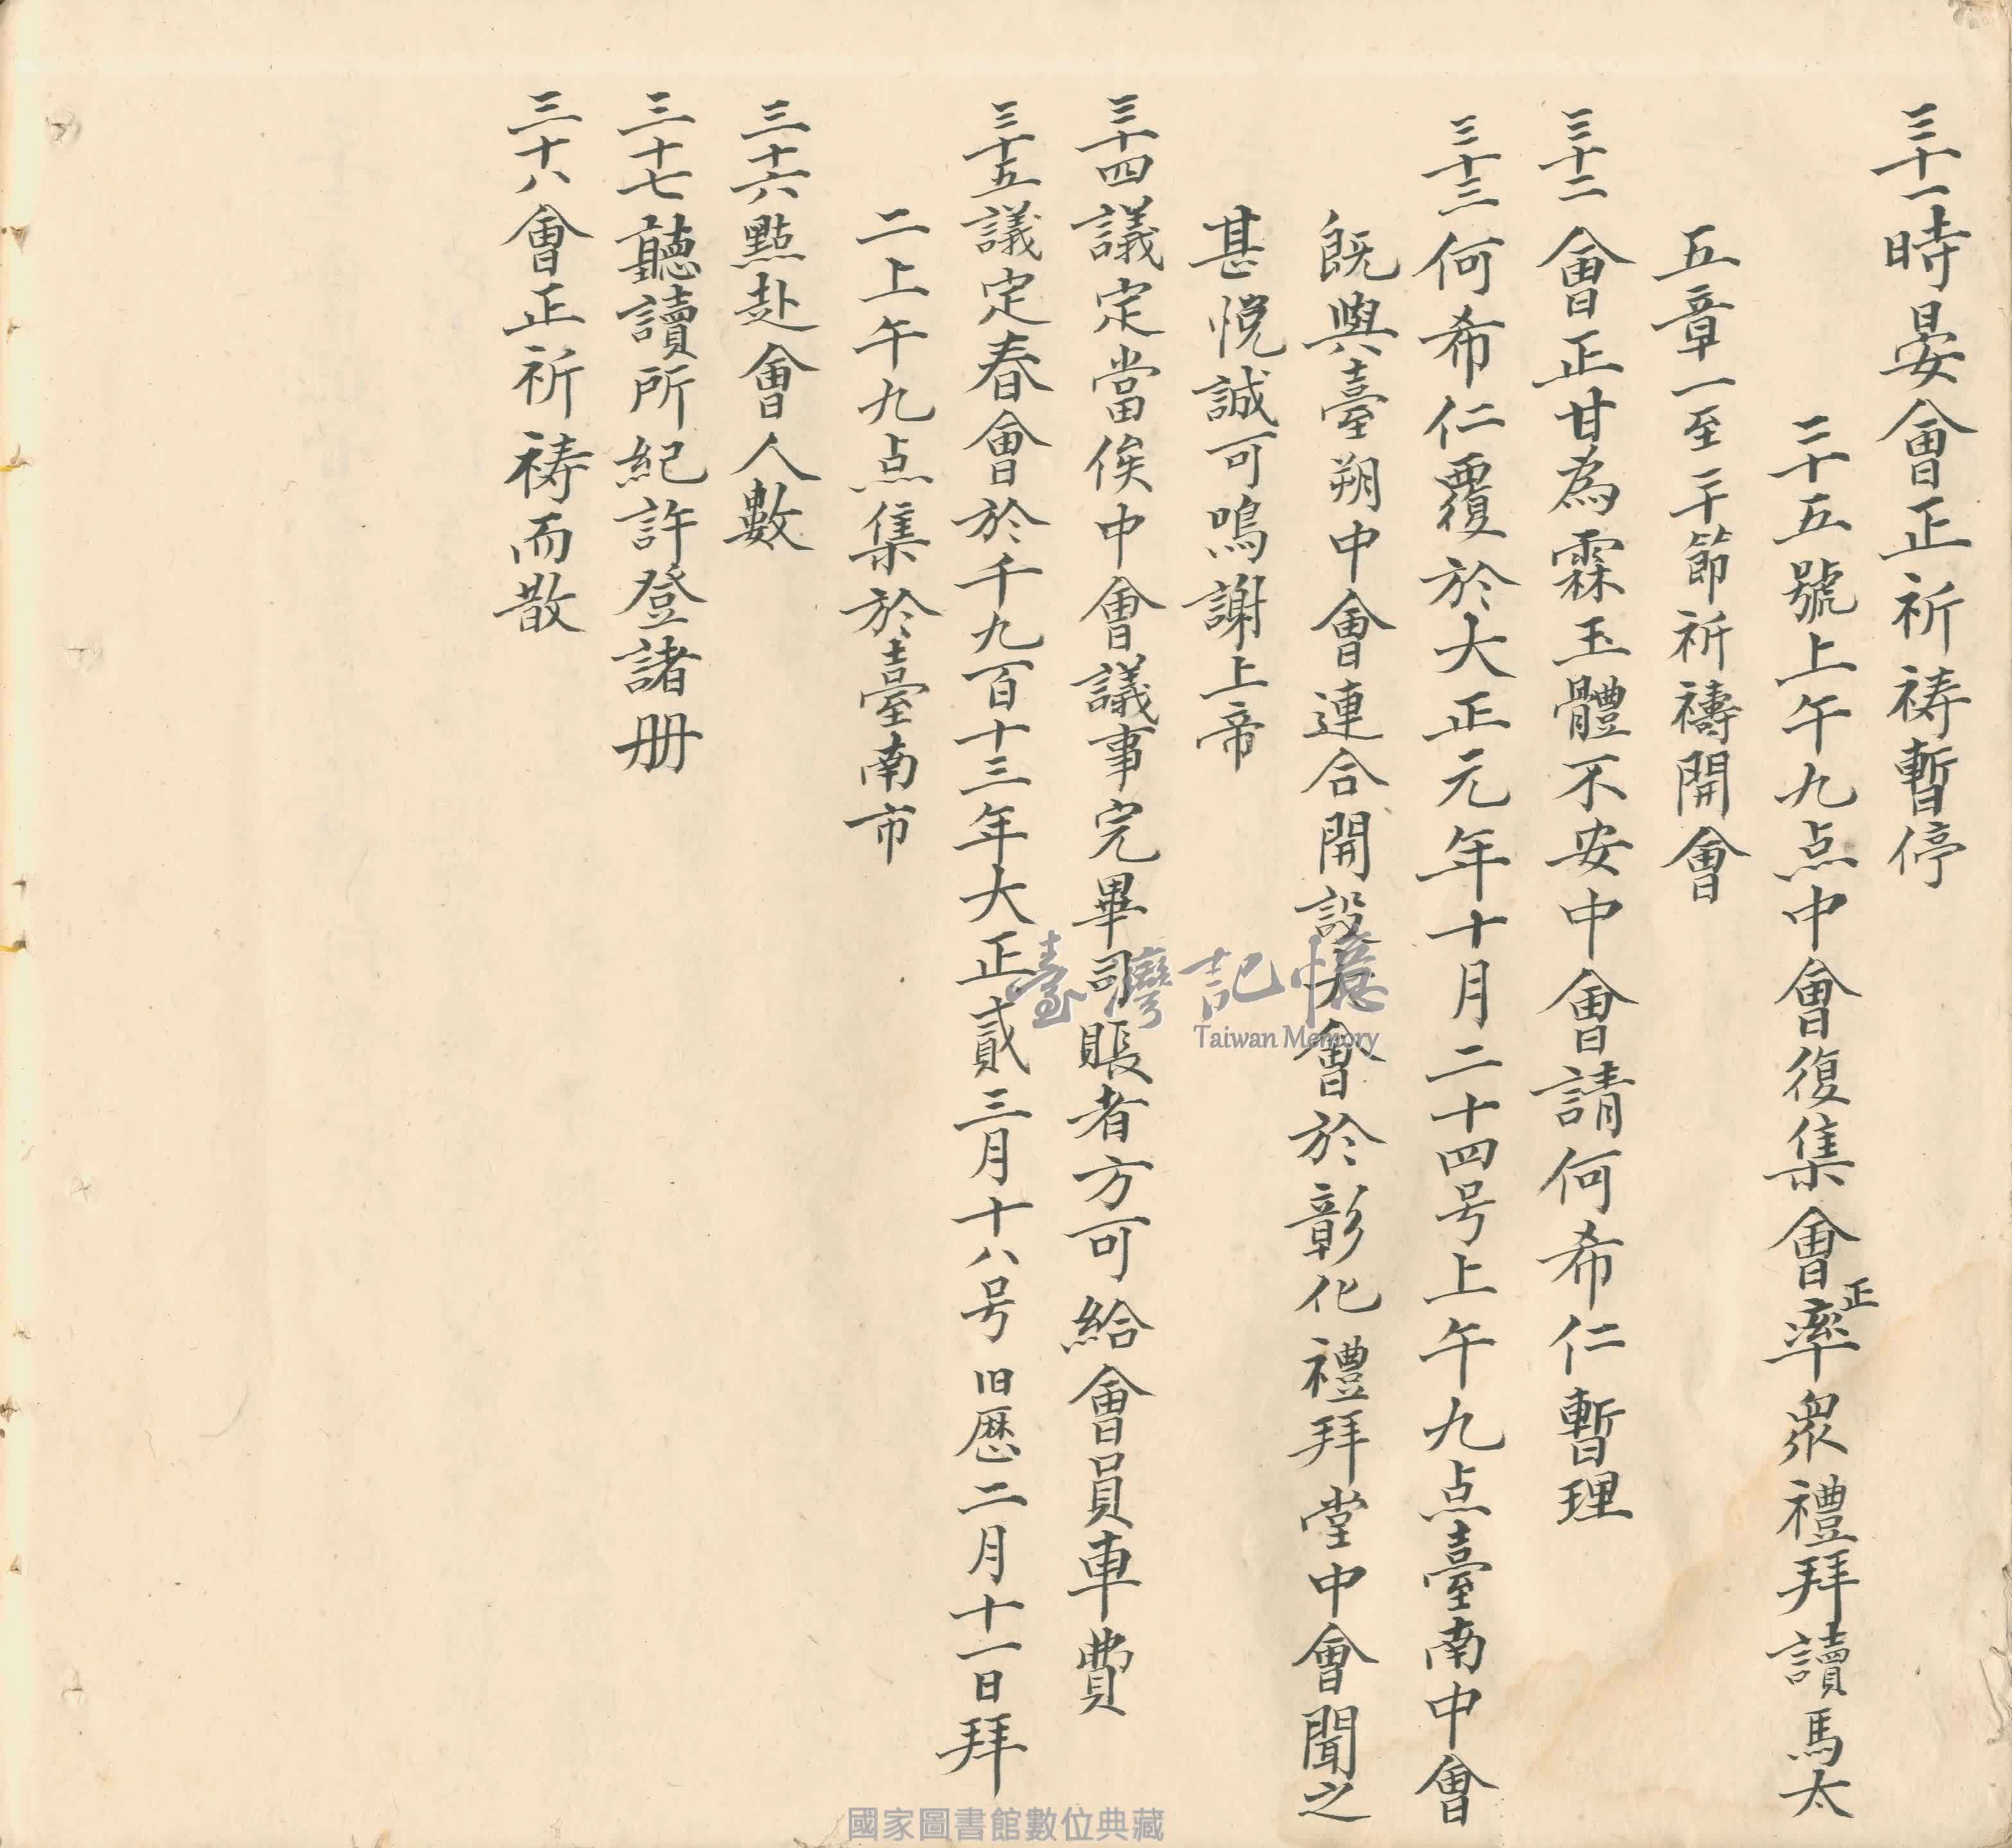 三十一時晏會正祈祷暫停
二十五號上午九点中會復集會正率衆禮拜讀馬太
五章一至二十節祈禱開會
三十二會正甘為霖玉體不安中會請何希仁暫理
三十三何希仁覆於大正元年十月二十四号上午九点臺南中會
既與臺朔中會連合開設大會於彰化禮拜堂中會聞之
甚悅誠可鳴謝上帝
三十四議定當俟中會議事完畢司賬者方可給會員車費
三十五議定春會於千九百十三年大正貳三月十八号旧歷二月十一日拜
二上午九点集於臺南市
三十六點赴會人數
三十七聽讀所紀許登諸冊
三十八會正祈祷而散
臺灣記憶
Taiwan Memory
國家圖書館數位典藏